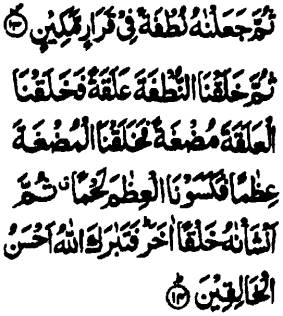 ثُمَّ جَعَلْنٰهُ نُطْفَةً فِیْ قَرَارٍ مَّكِیْنٍ ۝۱۳
ثُمَّ خَلَقْنَا النُّطْفَةَ عَلَقَةً فَخَلَقْنَا
الْعَلَقَةَ مُضْغَةً فَخَلَقْنَا الْمُضْغَةَ
عِظٰمًا فَكَسَوْنَا الْعِظٰمَ لَحْمًا ۗ ثُمَّ
اَنْشَاْنٰهُ خَلْقًا اٰخَرَ ؕ فَتَبٰرَكَ اللّٰهُ اَحْسَنُ
الْخَالِقِیْنَ ۝۱۴